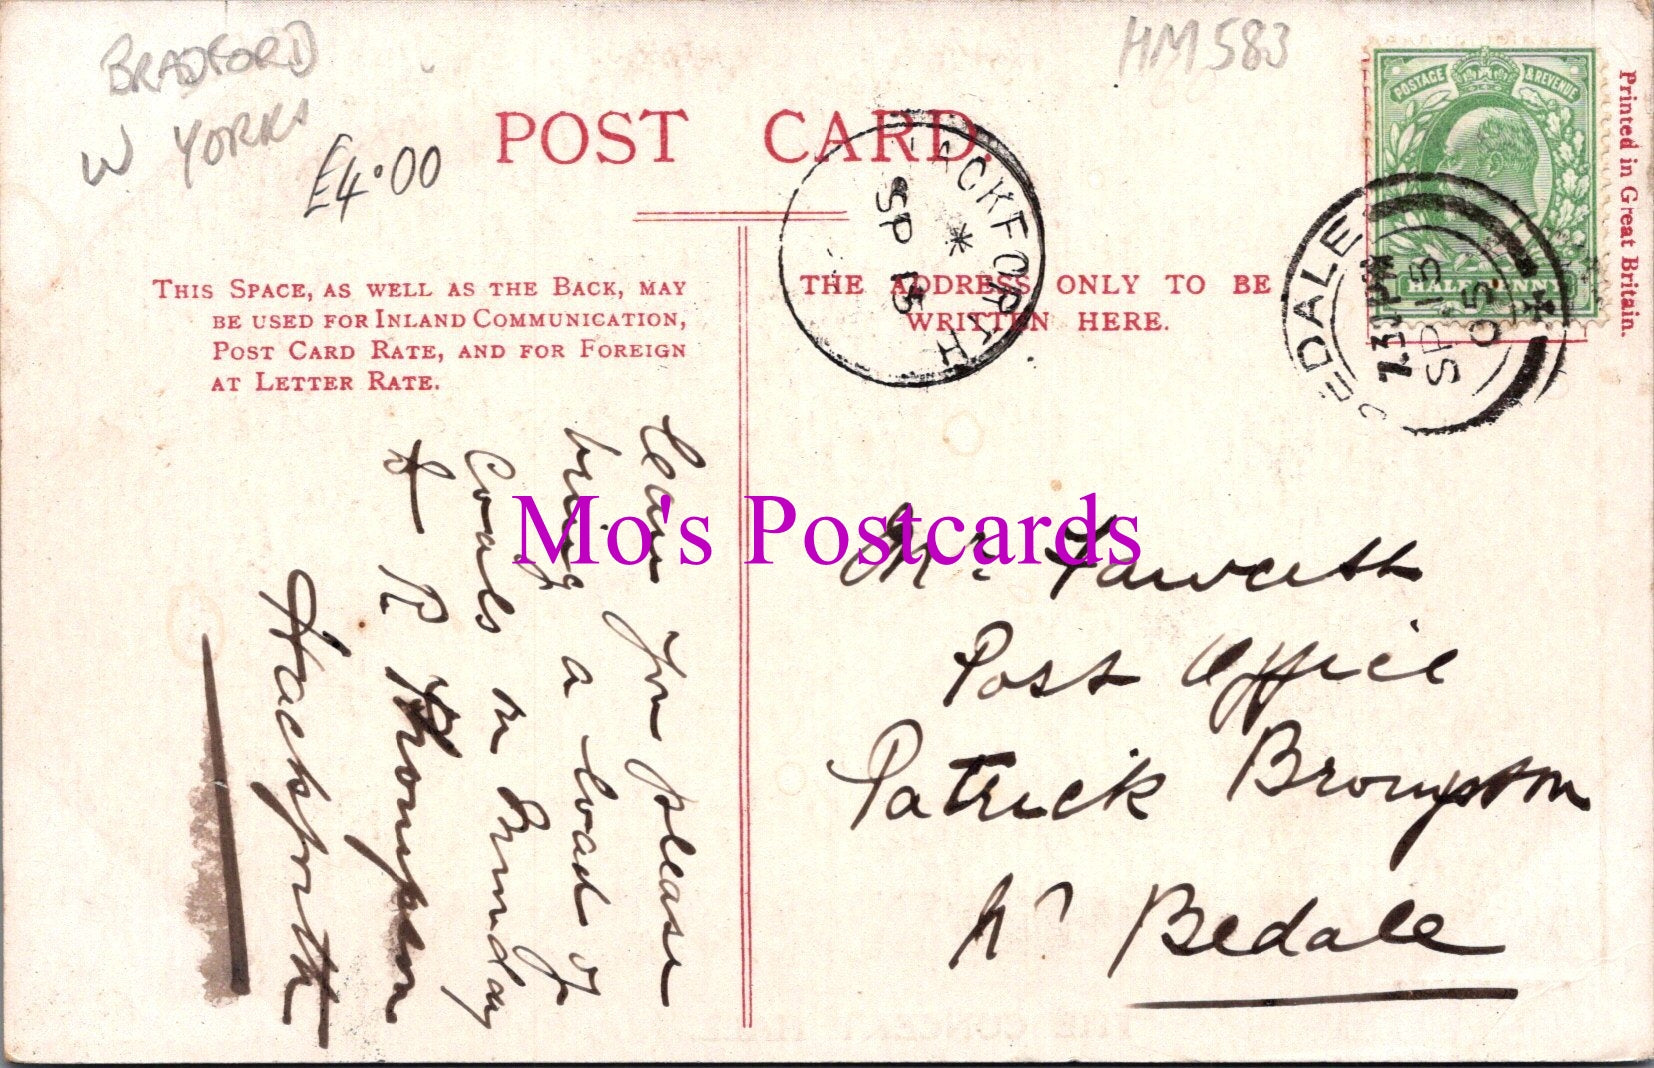 BRADFORD
W YORKS
£4.00
HM583
POST CARD.
POSTAGE & REVENUE
HALFPENNY
Printed in Great Britain.
THIS SPACE, AS WELL AS THE BACK, MAY
BE USED FOR INLAND COMMUNICATION,
POST CARD RATE, AND FOR FOREIGN
AT LETTER RATE.
THE ADDRESS ONLY TO BE
WRITTEN HERE.
ACKFORTH
SP 15
EDALE
7.30PM
SP 15
05
Can you please
bring a load of
Coals on
&
R Thompson
Hackforth
Mr Fawcett
Post Office
Patrick Brompton
Nr Bedale
Mo's Postcards